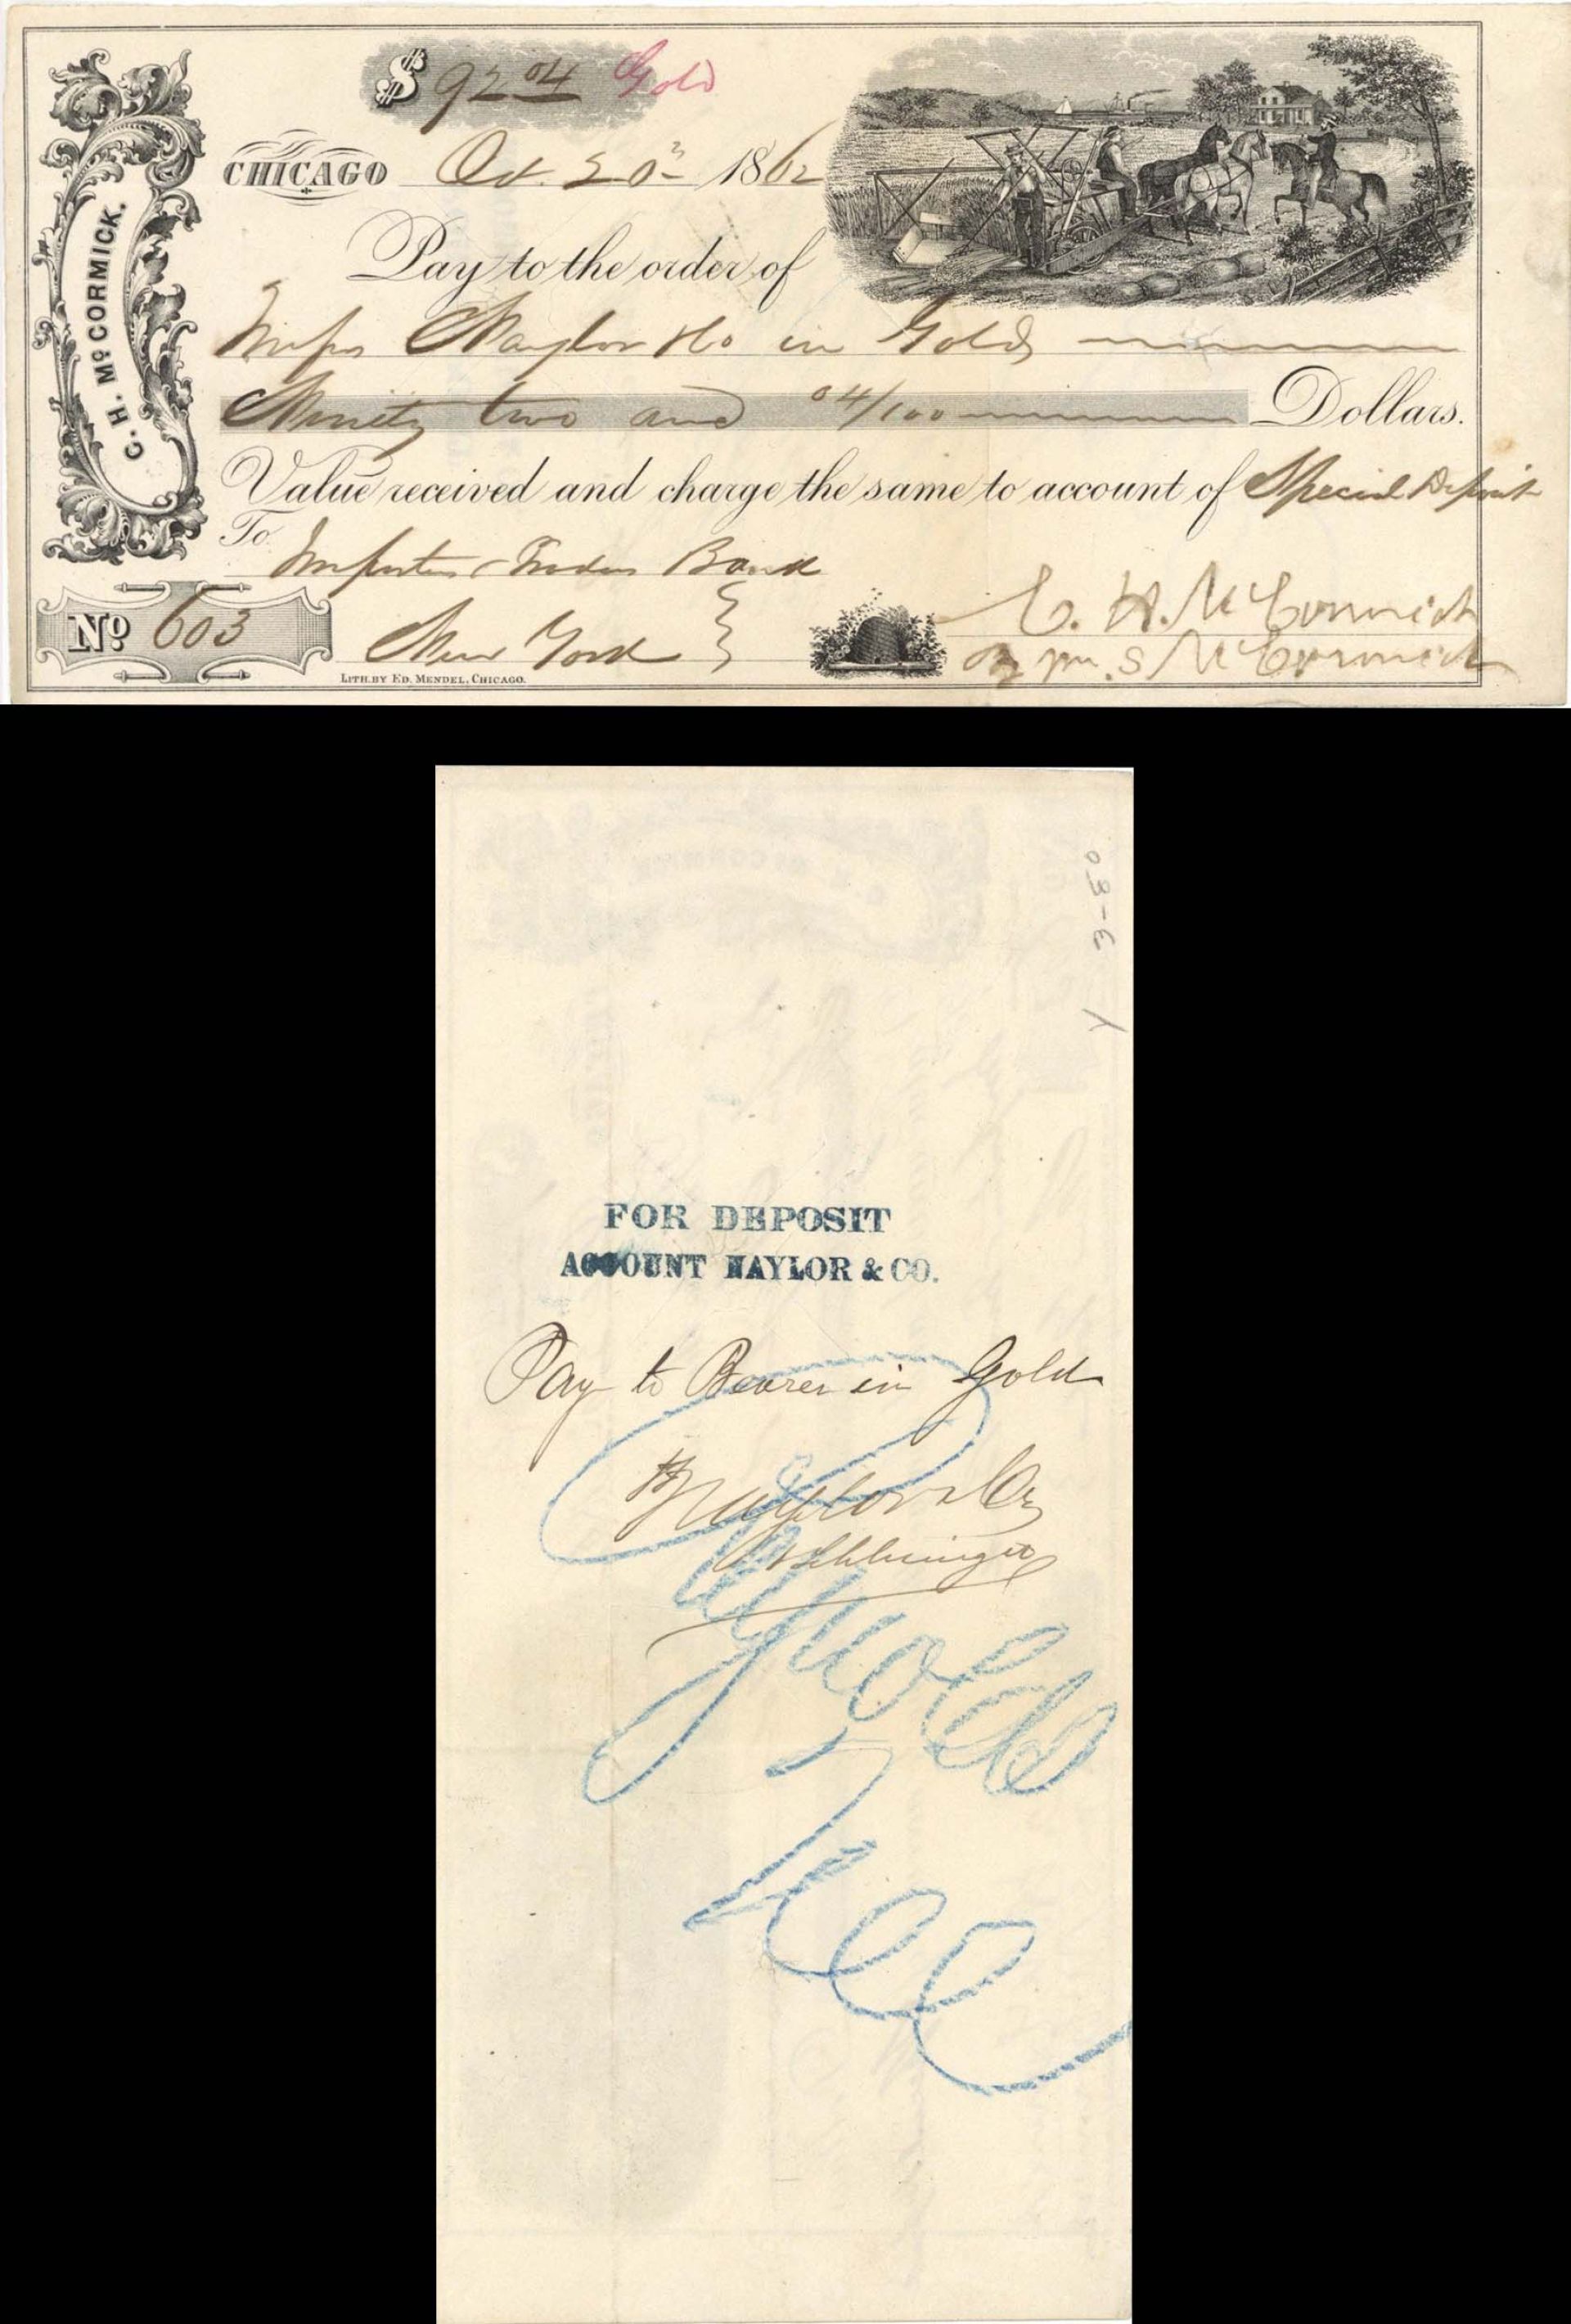 $ 92 04 Gold
CHICAGO Oct. 20 1862
Pay to the order of
Messrs Naylor & Co in Gold
Ninety two and 04/100 Dollars.
Value received and charge the same to account of Special Deposit
To
Importers & Traders Bank
New York
C. H. McCORMICK.
No 603
LITH. BY ED. MENDEL, CHICAGO.
C. H. McCormick
By Wm. S McCormick
3-80
FOR DEPOSIT
ACCOUNT NAYLOR & CO.
Pay to Bearer in Gold
Naylor & Co